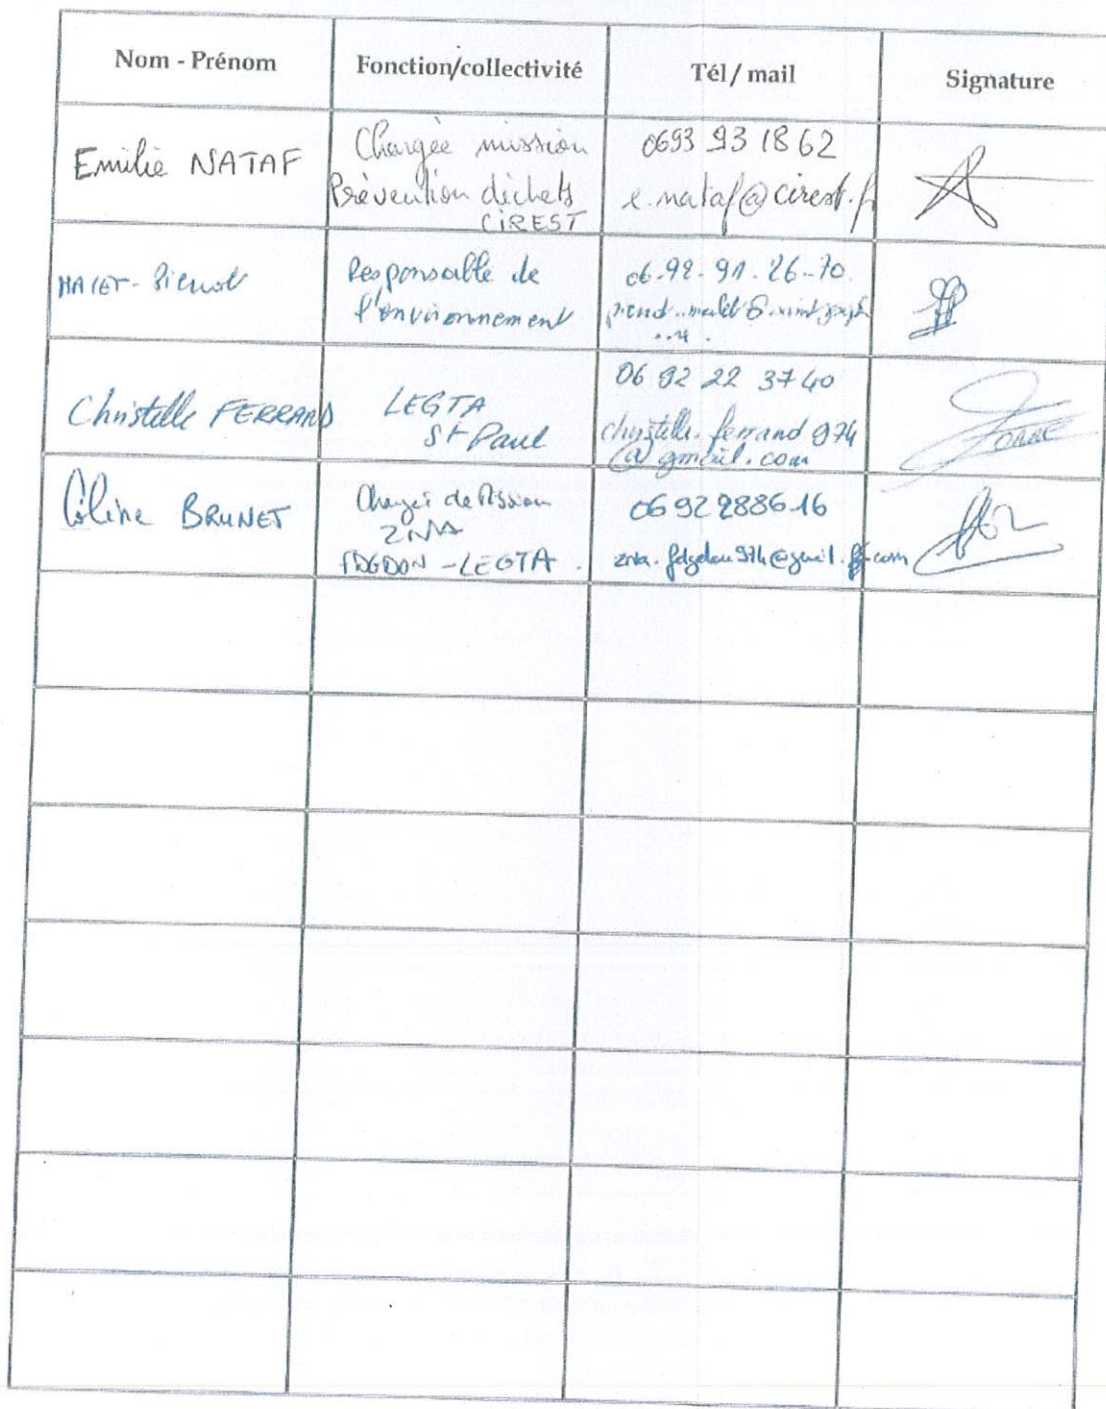 Nom - Prénom
Fonction/collectivité
Tél / mail
Signature
Emilie NATAF
Chargée mission
Prévention déchets
CIREST
0693 93 18 62
e.nataf@cirest.fr
Responsable de
l'environnement
06-92-91-26-70
Christelle FERRAND
LEGTA
St Paul
06 92 22 37 40
christelle.ferrand974
@gmail.com
BRUNET
Chargée de Mission
ZNA
FDGDON - LEGTA
06 92 28 86 16